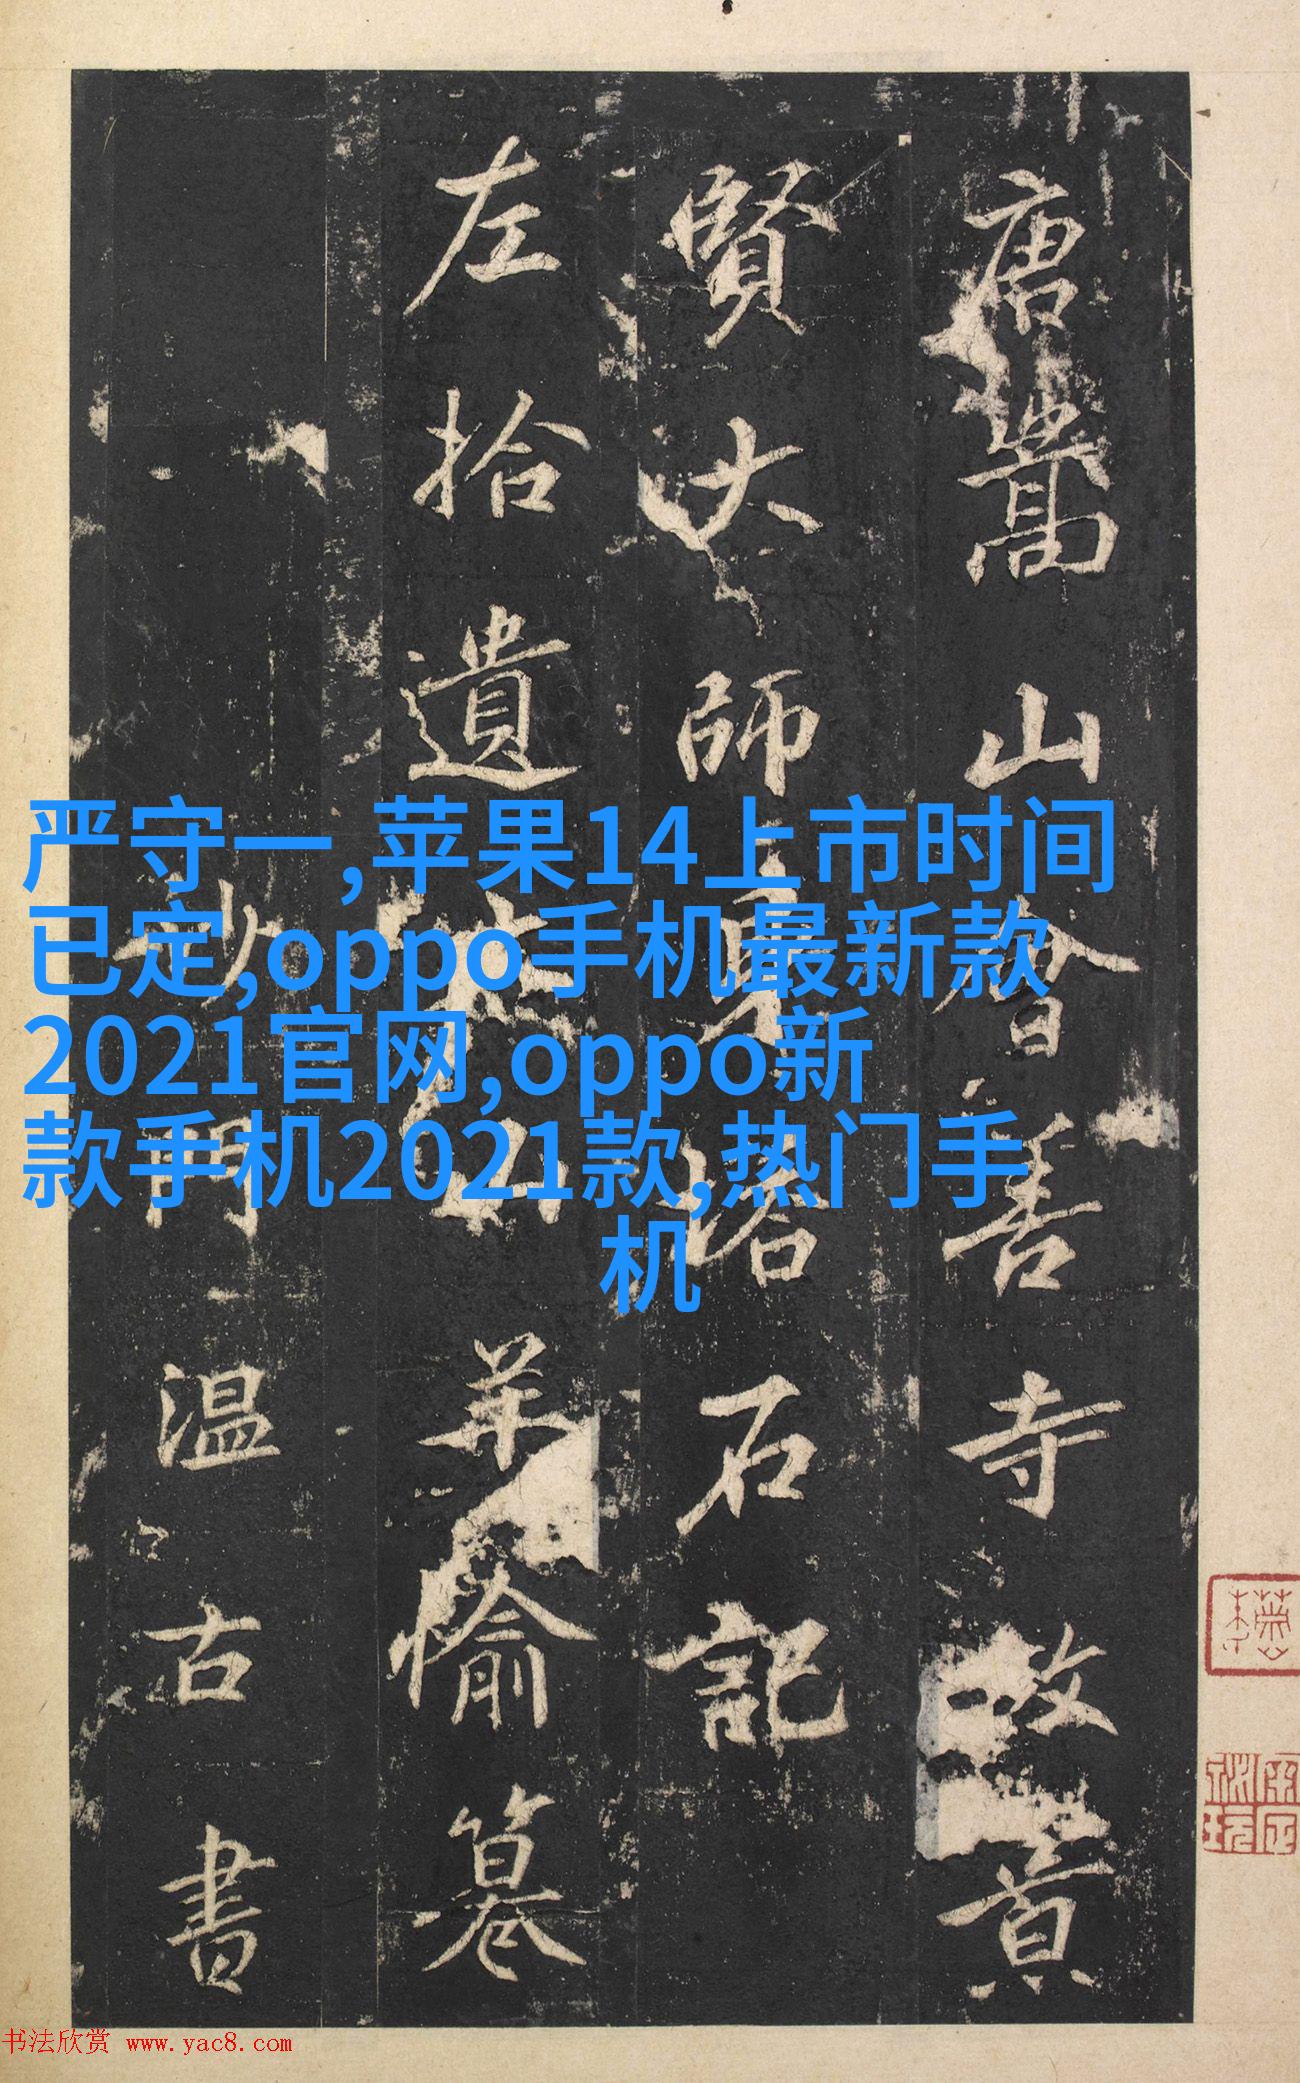 严守一,苹果14上市时间
已定,oppo手机最新款
2021官网,oppo新
款手机2021款,热门手
机
唐嵩山會善寺故景
賢大師身塔石記
左拾遺太山羊愉
沙門溫古書
书法欣赏 www.yac8.com